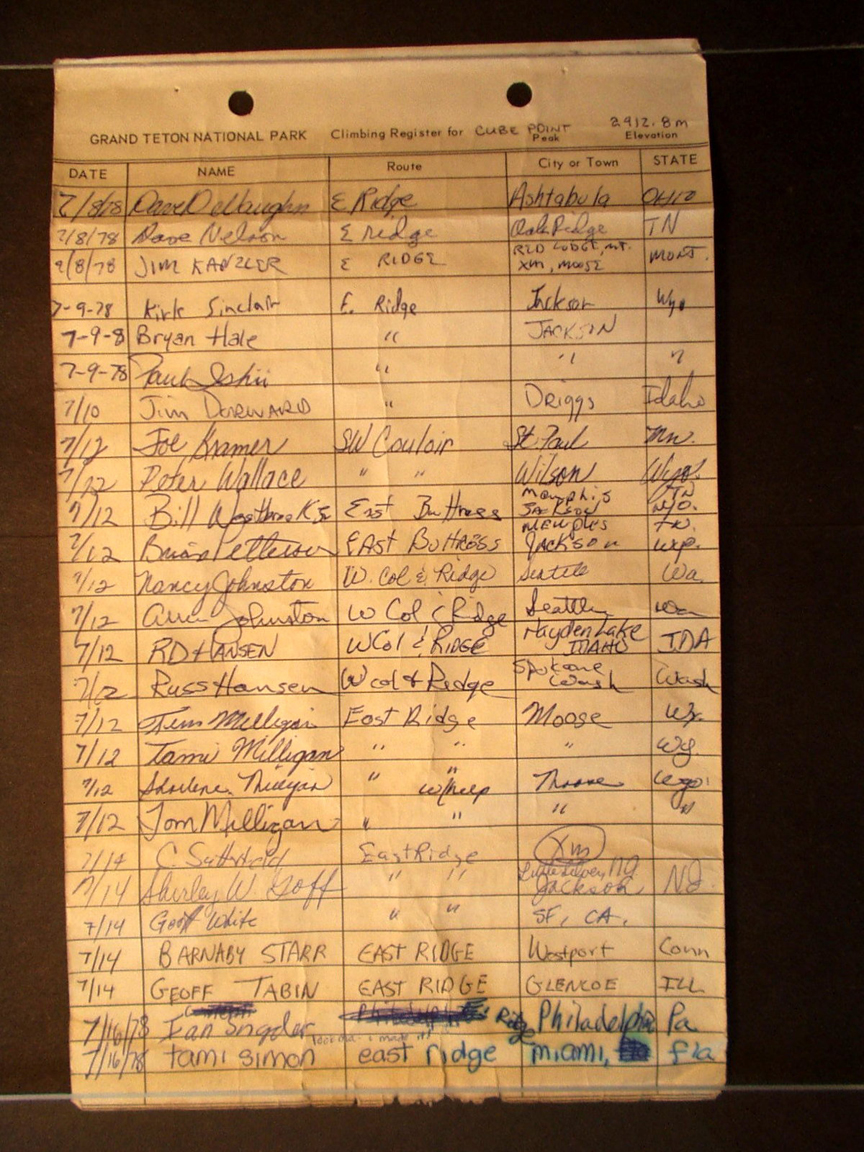 GRAND TETON NATIONAL PARK Climbing Register for CUBE POINT 2912.8m
Peak Elevation
DATE NAME Route City or Town STATE
7/8/78 Dave DeVaughn E Ridge Ashtabula OHIO
7/8/78 Dave Nelson E ridge Oak Ridge TN
RED LODGE, MT.
7/8/78 JIM KANZLER E RIDGE XM, MOOSE MONT.
7-9-78 Kirk Sinclair E. Ridge Jackson Wyo
7-9-8 Bryan Hale " JACKSON
7-9-78 Paul " " "
7/10 Jim DORWARD " Driggs Idaho
7/12 Joe Kramer SW Couloir St. Paul Mn.
7/12 Peter Wallace " " Wilson Wyo.
Memphis TN
7/12 Bill East Buttress JACKSON WYO.
MEMPHIS TN.
7/12 Brian Petterson EAST BUTTRESS JACKSON
7/12 Nancy Johnston W. Col & Ridge Seattle Wa.
7/12 Johnston W Col & Ridge Seattle
7/12 RD HANSEN W Col & RIDGE Hayden Lake IDAHO IDA
7/12 Russ Hansen W col & Ridge Spokane Wash Wash
7/12 Milligan East Ridge Moose Wy.
7/12 Tami Milligan " " " Wy.
7/12 " " w/help Wyo.
7/12 Tom Milligan " " " "
7/14 C. East Ridge XM
7/14 Shirley W. Goff " " Jackson
7/14 Geoff White " " SF, CA.
7/14 BARNABY STARR EAST RIDGE Westport Conn
7/14 GEOFF TABIN EAST RIDGE GLENCOE ILL
7/16/78 Ian Snyder E. Ridge Philadelphia Pa
7/16/78 tami simon east ridge miami, fla